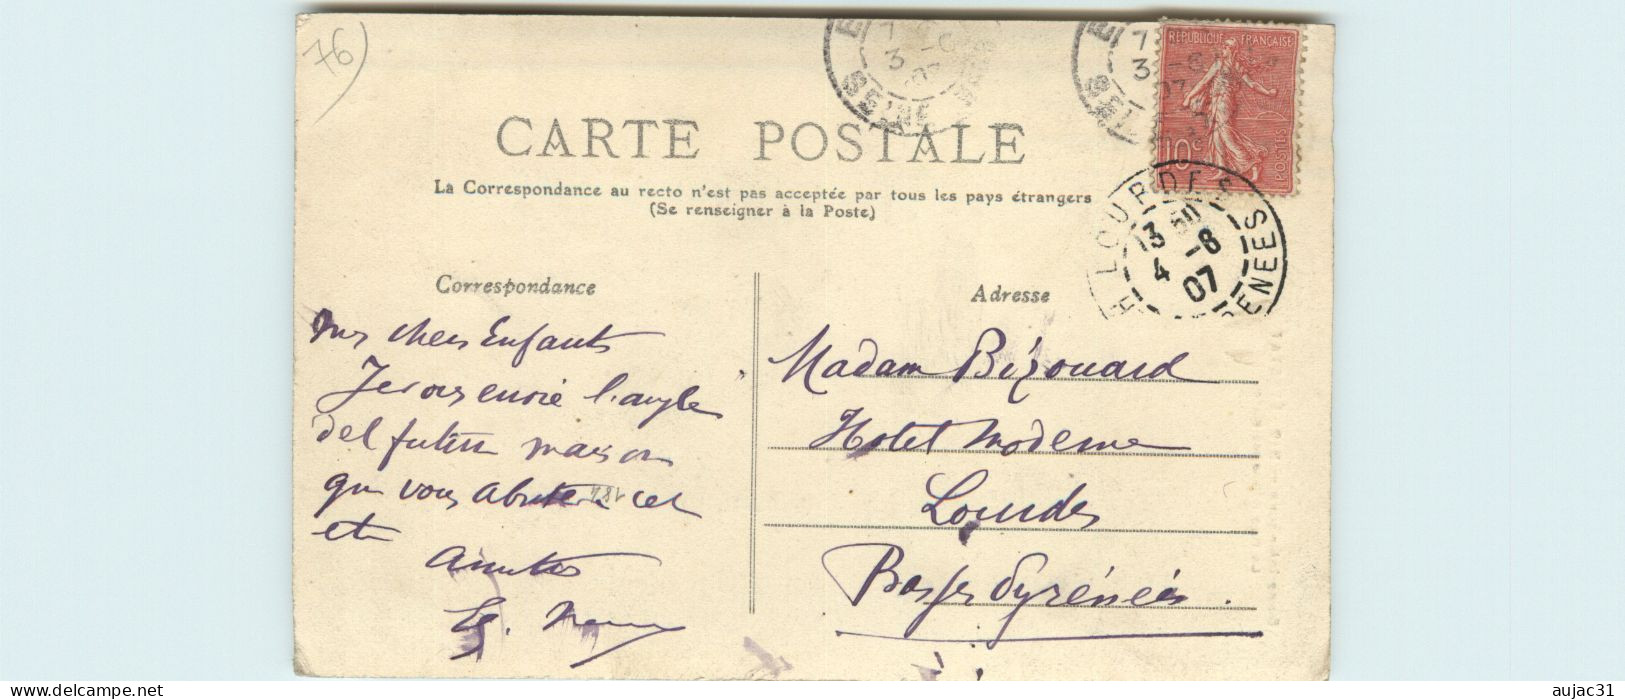 76
7 -6
3 07
SEINE
7
3 -6
07
REPUBLIQUE FRANÇAISE
10 c
POSTES
CARTE POSTALE
La Correspondance au recto n'est pas acceptée par tous les pays étrangers
(Se renseigner à la Poste)
LOURDES
3 -8
4 07
Correspondance
Adresse
Mes chers Enfants
Je vous envoie l'angle
del futur maison
que vous cet
été
Amitiés
Madam Bézouard
Hotel Moderne
Lourdes
Basses Pyrénées
aujac31